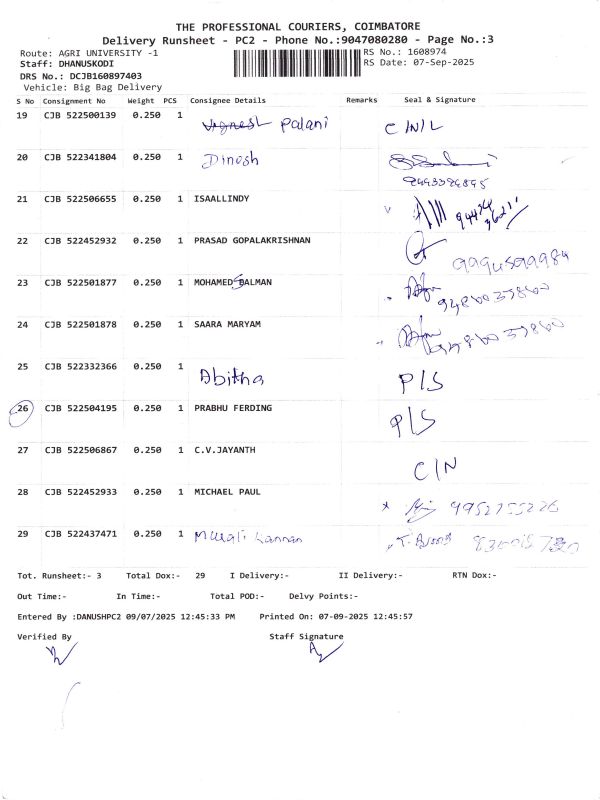 THE PROFESSIONAL COURIERS, COIMBATORE
Delivery Runsheet - PC2 - Phone No.:9047080280 - Page No.:3
Route: AGRI UNIVERSITY -1 RS No.: 1608974
Staff: DHANUSKODI RS Date: 07-Sep-2025
DRS No.: DCJB160897403
Vehicle: Big Bag Delivery
S No Consignment No Weight PCS Consignee Details Remarks Seal & Signature
19 CJB 522500139 0.250 1 Vignesh Palani C/N/L
20 CJB 522341804 0.250 1 Dinesh
21 CJB 522506655 0.250 1 ISAALLINDY
22 CJB 522452932 0.250 1 PRASAD GOPALAKRISHNAN
23 CJB 522501877 0.250 1 MOHAMED SALMAN
24 CJB 522501878 0.250 1 SAARA MARYAM
25 CJB 522332366 0.250 1 Abitha P/S
26 CJB 522504195 0.250 1 PRABHU FERDING P/S
27 CJB 522506867 0.250 1 C.V.JAYANTH C/N
28 CJB 522452933 0.250 1 MICHAEL PAUL 9952755226
29 CJB 522437471 0.250 1 Murali Kannan
Tot. Runsheet:- 3 Total Dox:- 29 I Delivery:- II Delivery:- RTN Dox:-
Out Time:- In Time:- Total POD:- Delvy Points:-
Entered By :DANUSHPC2 09/07/2025 12:45:33 PM Printed On: 07-09-2025 12:45:57
Verified By Staff Signature